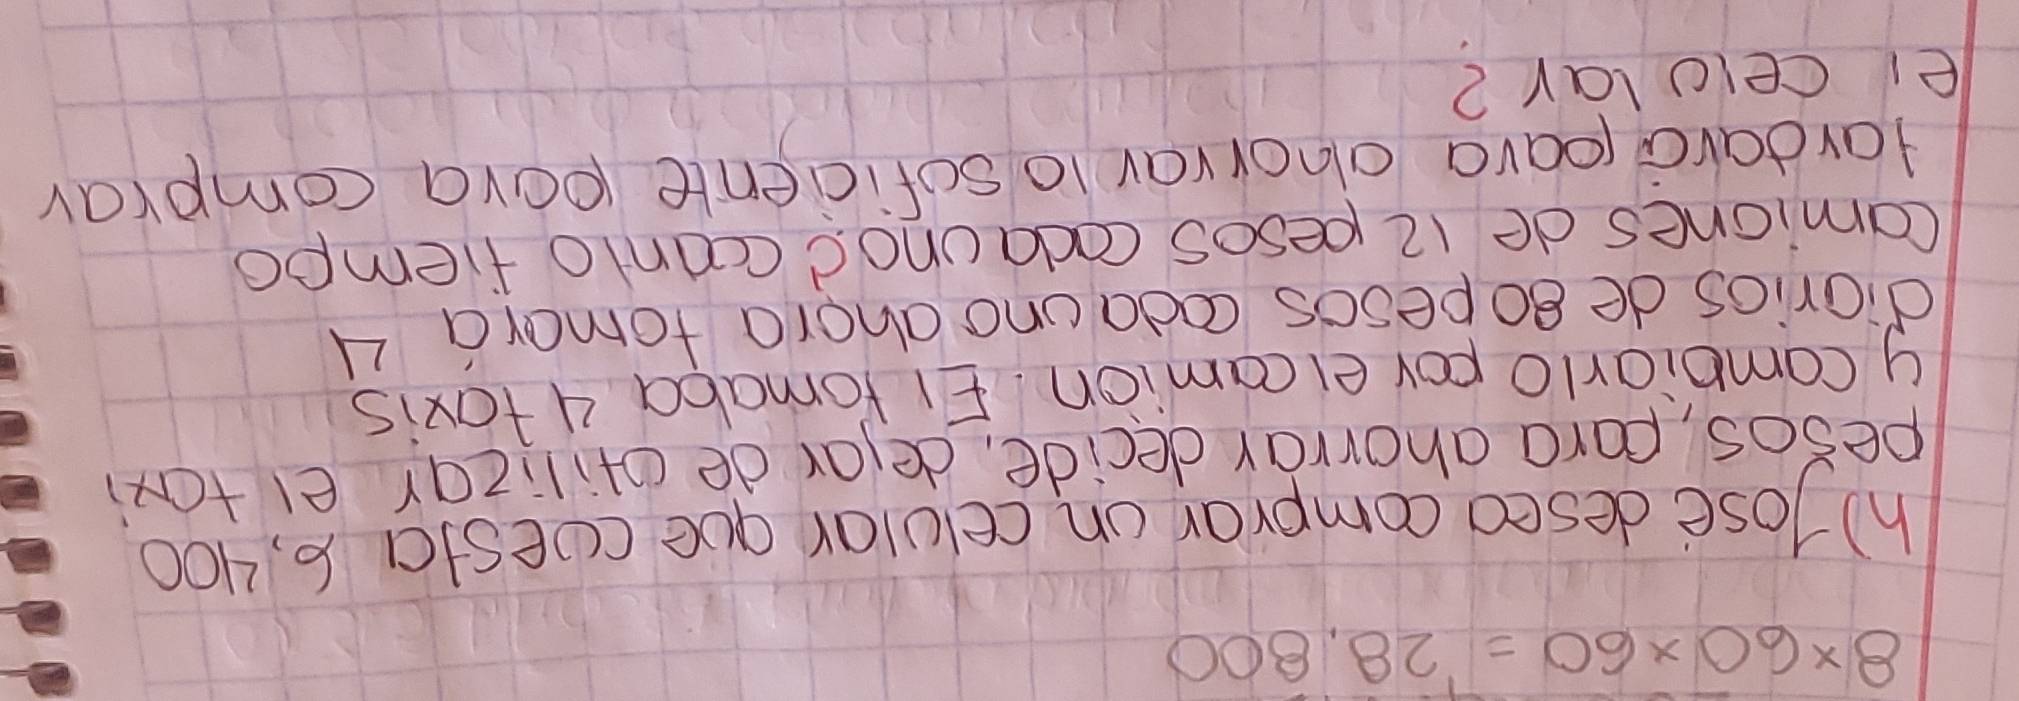 8×60×60 = 28,800
h) José desea comprar un celular que cuesta 6,400
pesos, para ahorrar decide, dejar de utilizar el taxi
y cambiarlo por el camión. El tomaba 4 taxis
diarios de 80 pesos cada uno ahora tomará 4
camiones de 12 pesos cada uno ¿ cuanto tiempo
tardará para ahorrar lo suficiente para comprar
el celular ?